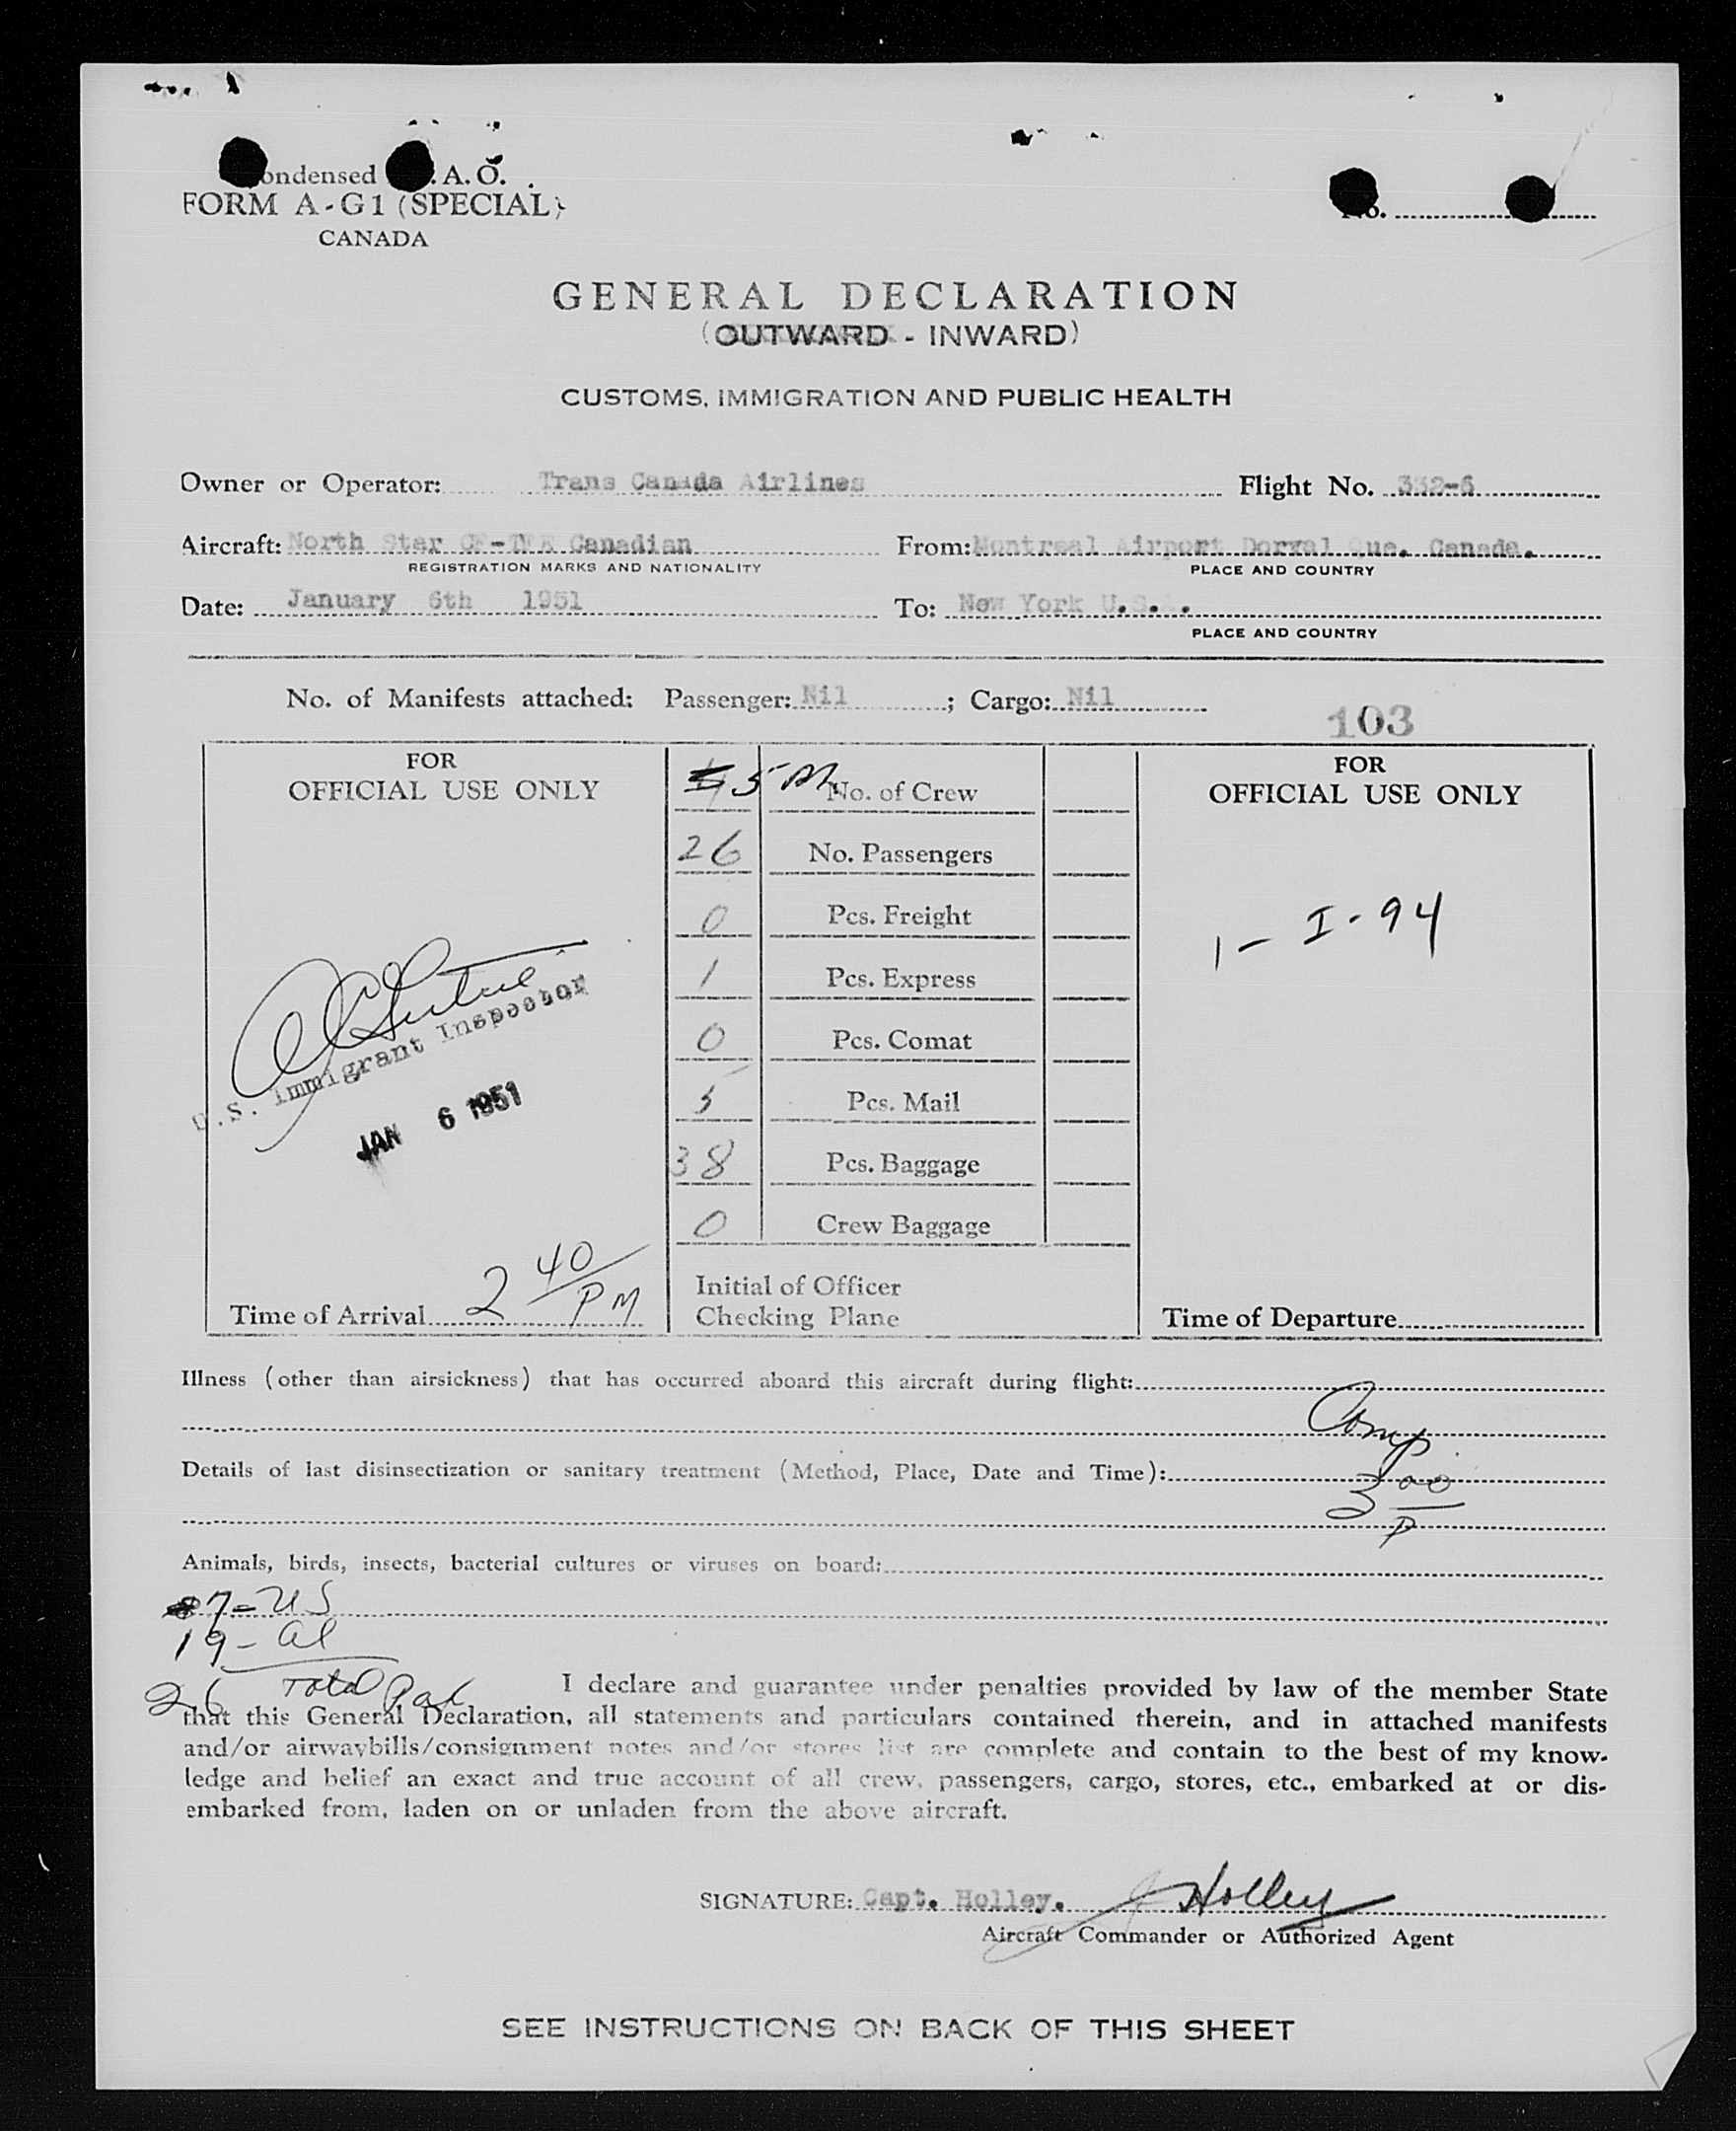 ondensed .A.O.
FORM A-G1 (SPECIAL)
CANADA
No.
GENERAL DECLARATION
(OUTWARD - INWARD)
CUSTOMS, IMMIGRATION AND PUBLIC HEALTH
Owner or Operator: Trans Canada Airlines Flight No. 332-6
Aircraft: North Star Canadian From: Montreal Airport Dorval Que. Canada.
REGISTRATION MARKS AND NATIONALITY PLACE AND COUNTRY
Date: January 6th 1951 To: New York U.S.
PLACE AND COUNTRY
No. of Manifests attached: Passenger: Nil ; Cargo: Nil
103
FOR
OFFICIAL USE ONLY
5 No. of Crew
26 No. Passengers
0 Pcs. Freight
1 Pcs. Express
0 Pcs. Comat
5 Pcs. Mail
38 Pcs. Baggage
0 Crew Baggage
Initial of Officer
Checking Plane
FOR
OFFICIAL USE ONLY
1 - I-94
U.S. Immigrant Inspector
JAN 6 1951
Time of Arrival 2 40 PM
Time of Departure
Illness (other than airsickness) that has occurred aboard this aircraft during flight:
Comp
Details of last disinsectization or sanitary treatment (Method, Place, Date and Time):
3 00 P
Animals, birds, insects, bacterial cultures or viruses on board:
7 - US
19 - al
26 Total Pax
I declare and guarantee under penalties provided by law of the member State
that this General Declaration, all statements and particulars contained therein, and in attached manifests
and/or airwaybills/consignment notes and/or stores list are complete and contain to the best of my know-
ledge and belief an exact and true account of all crew, passengers, cargo, stores, etc., embarked at or dis-
embarked from, laden on or unladen from the above aircraft.
SIGNATURE: Capt. Holley. Holley
Aircraft Commander or Authorized Agent
SEE INSTRUCTIONS ON BACK OF THIS SHEET